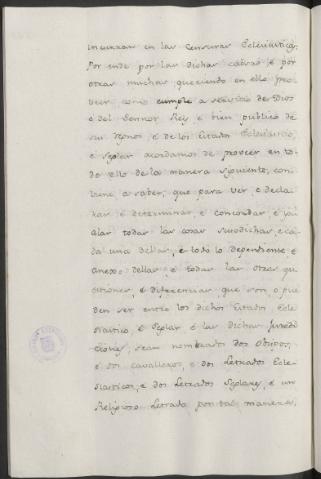 incurran en las Censuras Eclesiasticas;
Por ende por las dichas causas é por
otras muchas queriendo en ello pro
veer como cumple a servicio de Dios
e del Sennor Rey e bien publico de
sus regnos é de los Estados Eclesiastico,
e Seglar acordamos de proveer en to
do ello de la manera siguiente, con
biene a saber, que para ver e decla
rar é determinar e concordar, é igua
lar todas las cosas susodichas, e ca
da una dellas, é todo lo dependiente, é
anexo dellas é todas las otras qu
estiones, é diferencias que son o pue
den ser entre los dichos Estados Ecle
siastico, é Seglar é las dichas Juredi
ciones, sean nombrados dos Obispos,
é dos cavalleros, e dos Letrados Ecle
siasticos, e dos Letrados Seglares, é un
Religioso Letrado por tal manera,